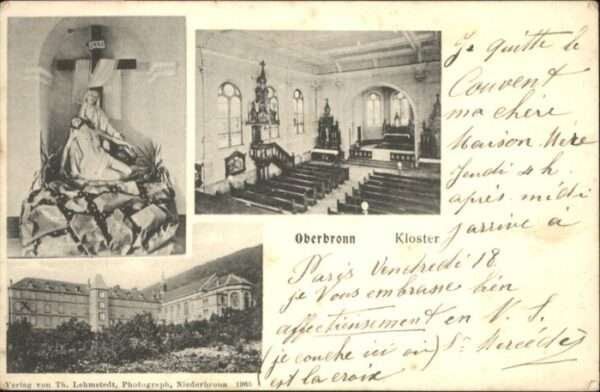 INRI
Je quitte le
Couvent
ma chère
Maison Mère
Jeudi 4 h.
après-midi
j'arrive à
Oberbronn Kloster
Paris Vendredi 18
je Vous embrasse bien
affectionsement en N. S.
(je couche ici où) Sr Mercédès
est la croix
Verlag von Th. Lehmstedt, Photograph, Niederbronn 1905